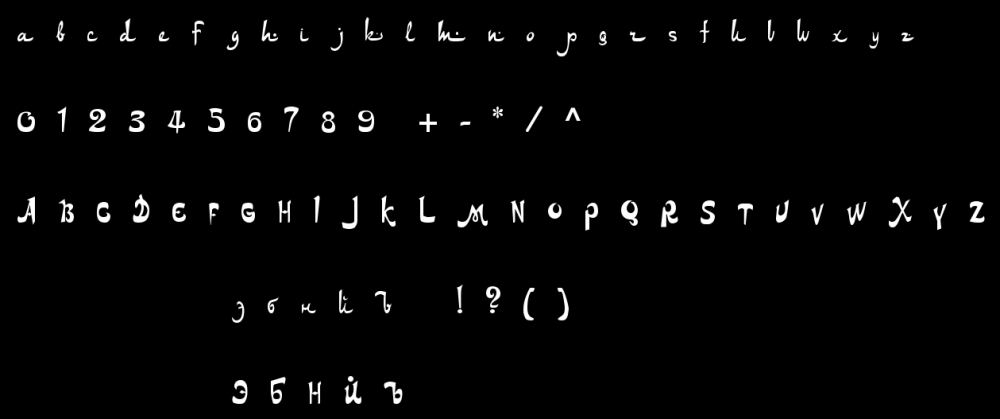 a b c d e f g h i j k l m n o p q r s t u v w x y z
0 1 2 3 4 5 6 7 8 9 + - * / ^
A B C D E F G H I J K L M N O P Q R S T U V W X Y Z
э б н й ъ ! ? ( )
Э Б Н Й Ъ